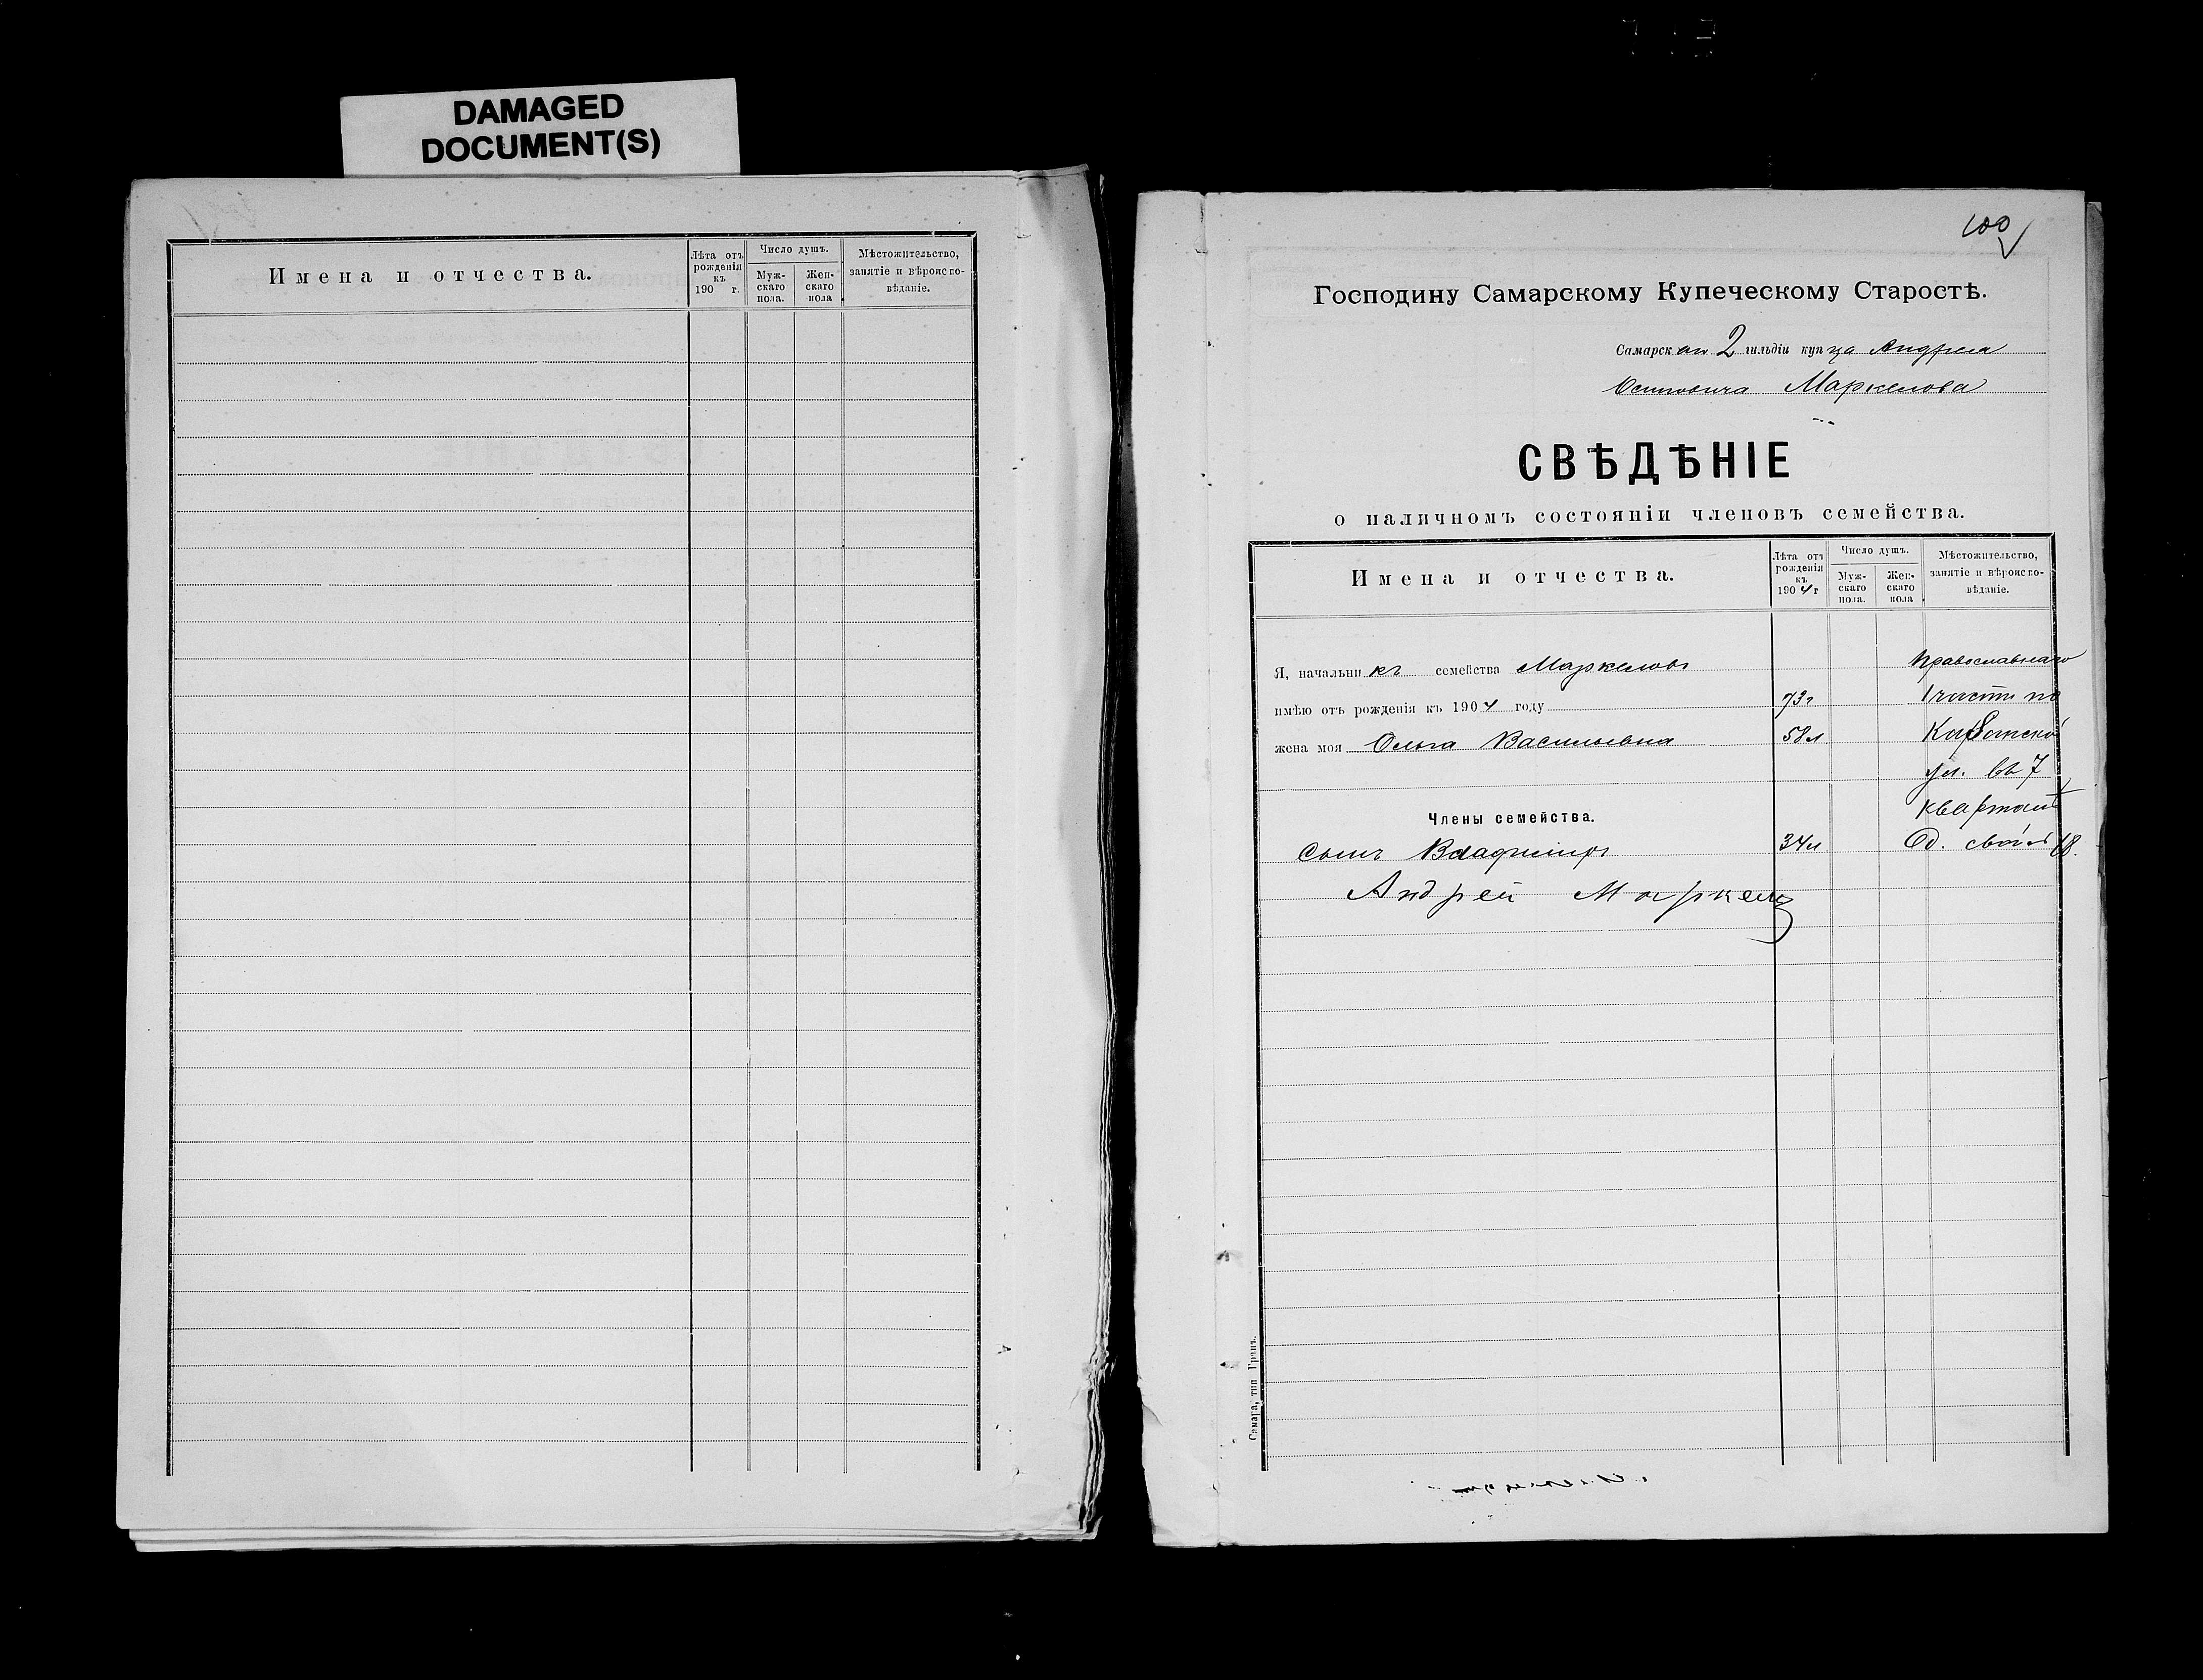 DAMAGED
DOCUMENT(S)
Имена и отчества.
Лѣта отъ рожденія къ 190 г.
Число душъ.
Муж-
скаго
пола.
Жен-
скаго
пола
Мѣстожительство,
занятіе и вѣроиспо-
вѣданіе.
100
Господину Самарскому Купеческому Старостѣ.
Самарскаго 2 гильдіи купца Андрея
Осиповича Маркелова
СВѢДѢНІЕ
о наличномъ состояніи членовъ семейства.
Имена и отчества.
Лѣта отъ
рожденія
къ
1904 г
Число душъ.
Муж-
скаго
пола.
Жен-
скаго
пола
Мѣстожительство,
занятіе и вѣроиспо-
вѣданіе.
Я, начальникъ семейства Маркеловъ Православнаго
имѣю отъ рожденія къ 1904 году 73г 1 части по
жена моя Ольга Васильевна 58л
ул. въ 7
Члены семейства. кварталѣ
Сынъ Владиміръ 34л
Андрей Маркелов
Самара, тип Гранъ.